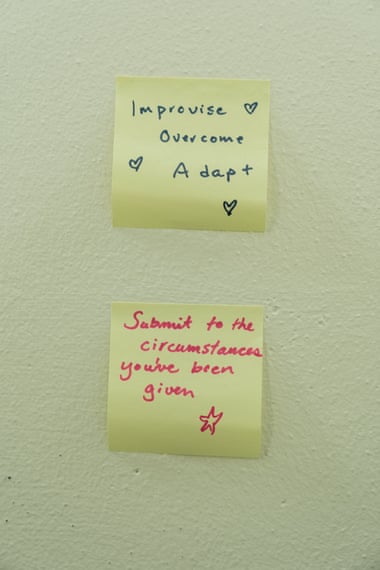 Improvise
Overcome
Adapt
Submit to the
circumstances
you've been
given